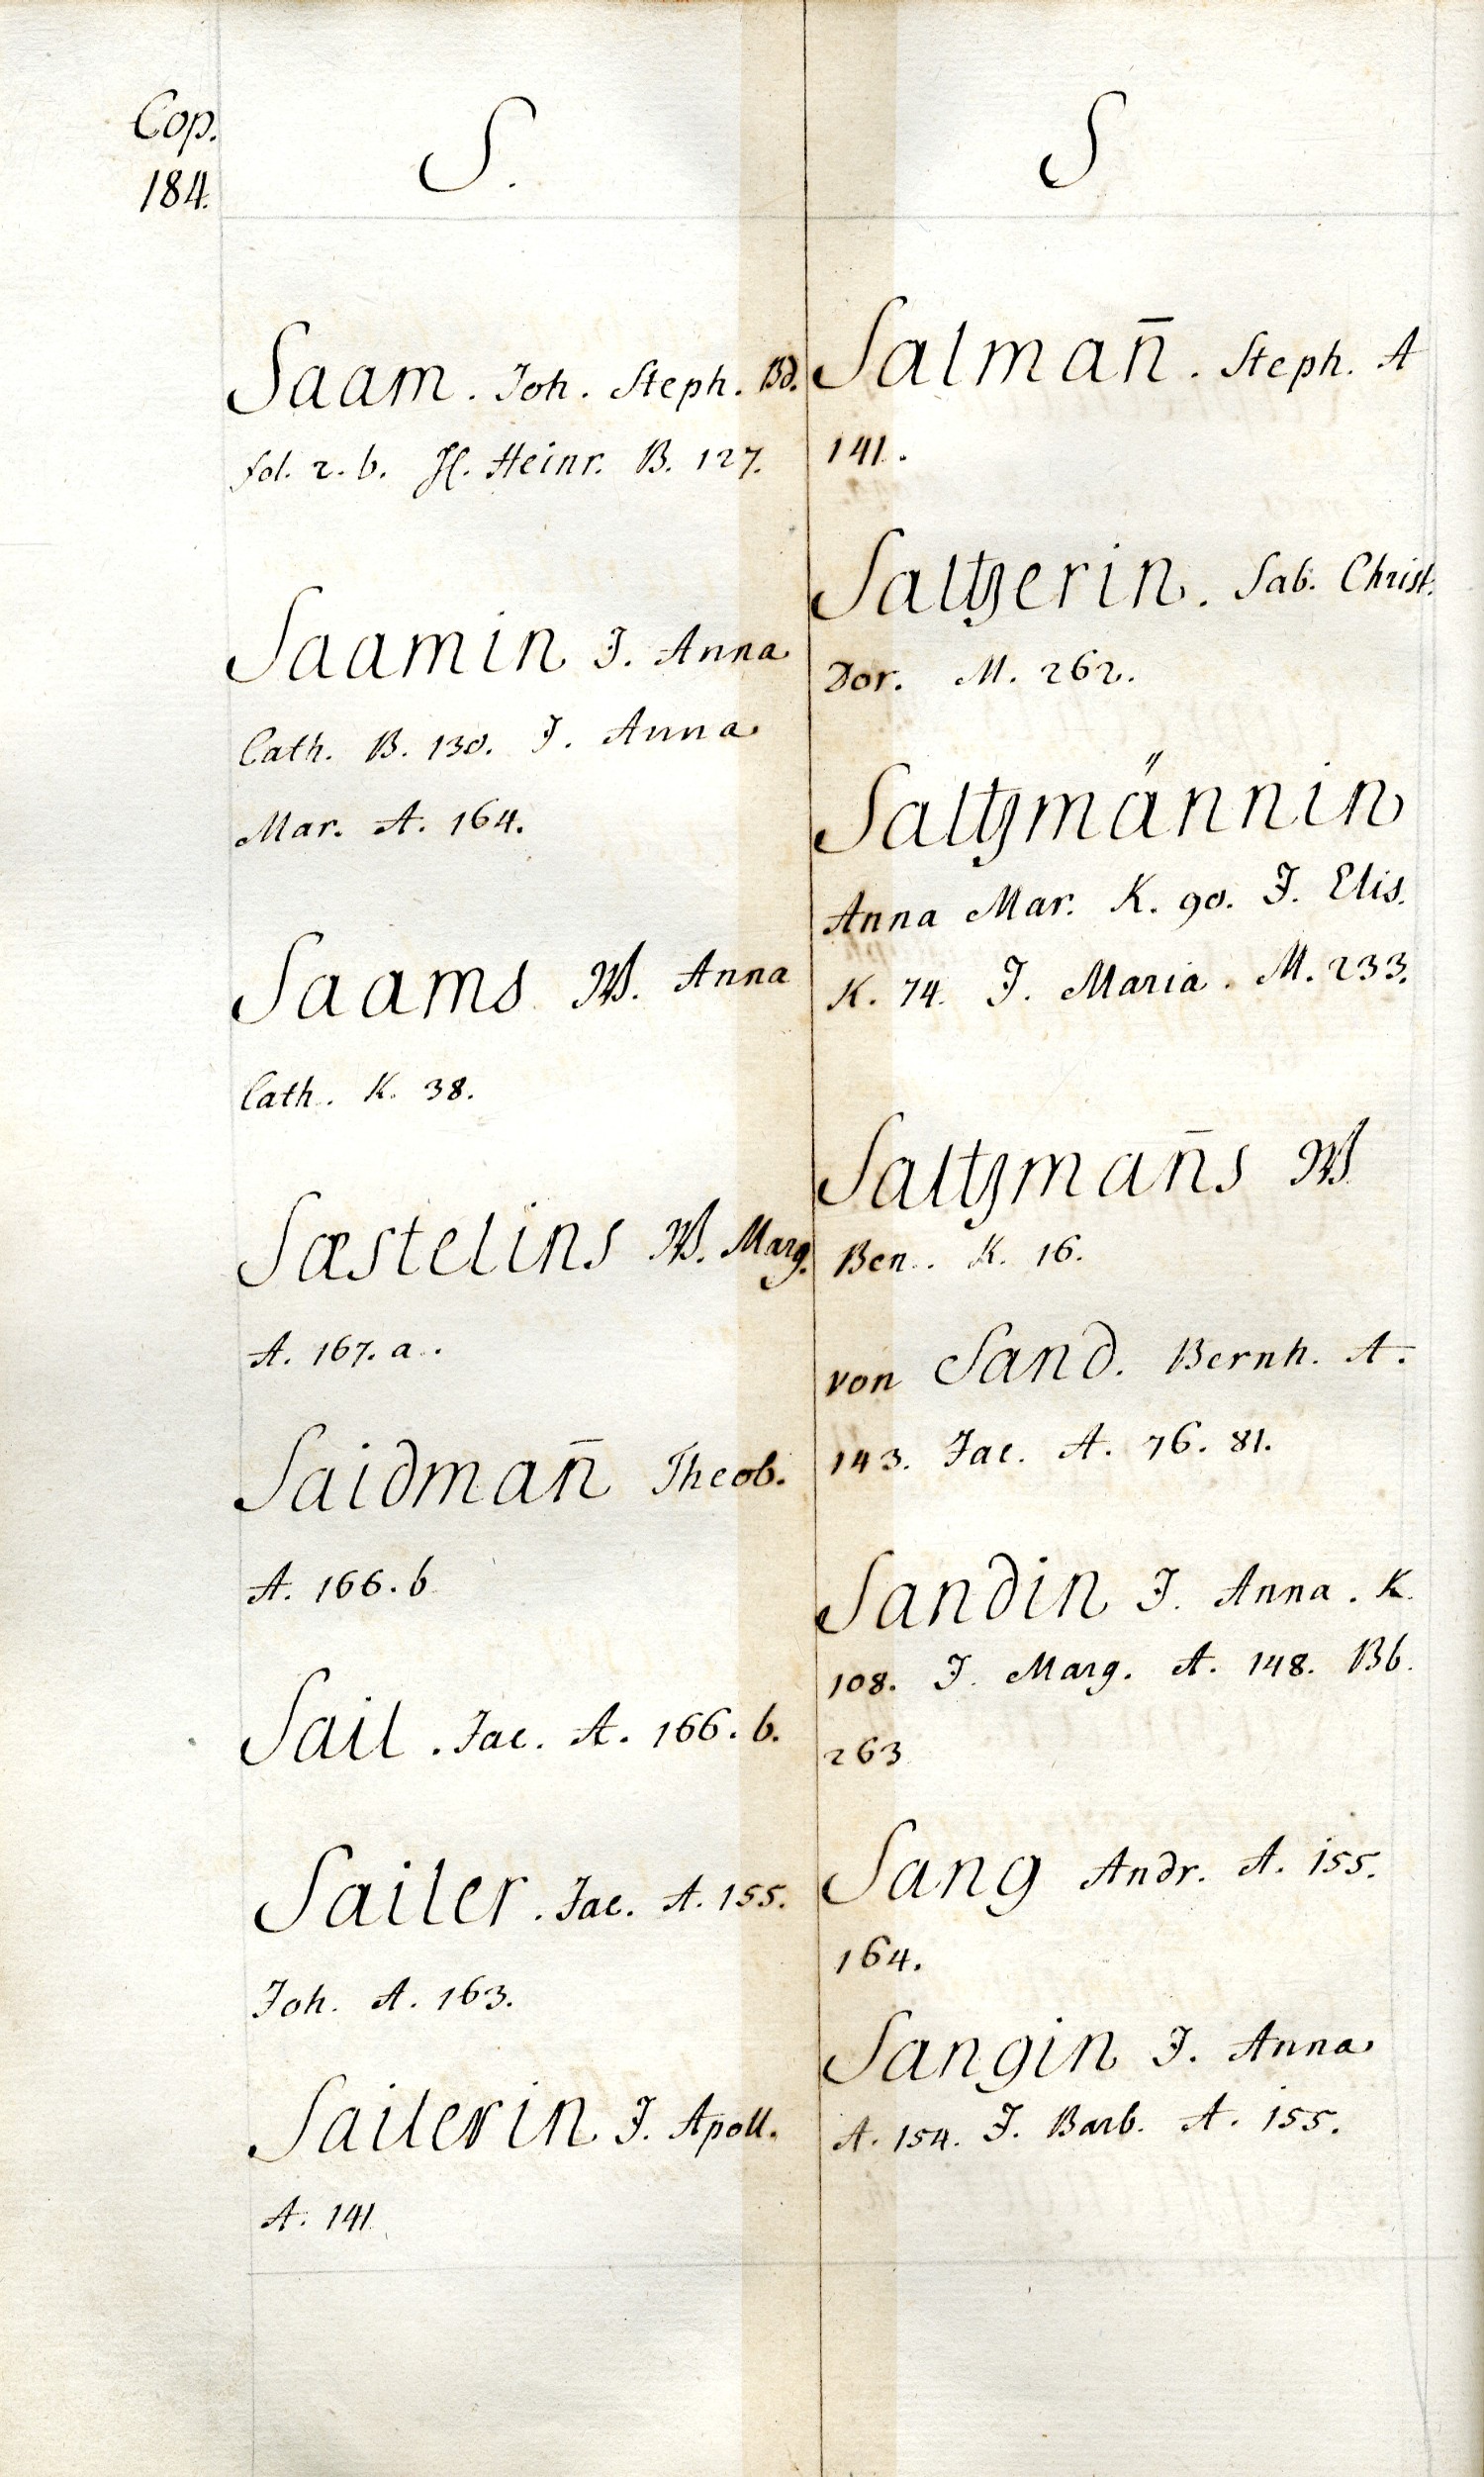 Cop.
184.
S.
Saam. Joh. Steph. Bd.
fol. 2. b. H. Heinr. B. 127.
Saamin J. Anna
Cath. B. 130. J. Anna
Mar. A. 164.
Saams W. Anna
Cath. K. 38.
Sæstelins W. Marg.
A. 167. a.
Saidman̄ Theob.
A. 166. b
Sail. Jac. A. 166. b.
Sailer. Jac. A. 155.
Joh. A. 163.
Sailerin J. Apoll.
A. 141
S
Salman̄. Steph. A
141.
Saltzerin. Sab. Christ.
Dor. M. 262.
Saltzmännin
Anna Mar. K. 90. J. Elis.
K. 74. J. Maria. M. 233.
Saltzman̄s W
Ben. K. 16.
von Sand. Bernh. A.
143. Jac. A. 76. 81.
Sandin J. Anna. K.
108. J. Marg. A. 148. Bb.
263
Sang Andr. A. 155.
164.
Sangin J. Anna
A. 154. J. Barb. A. 155.